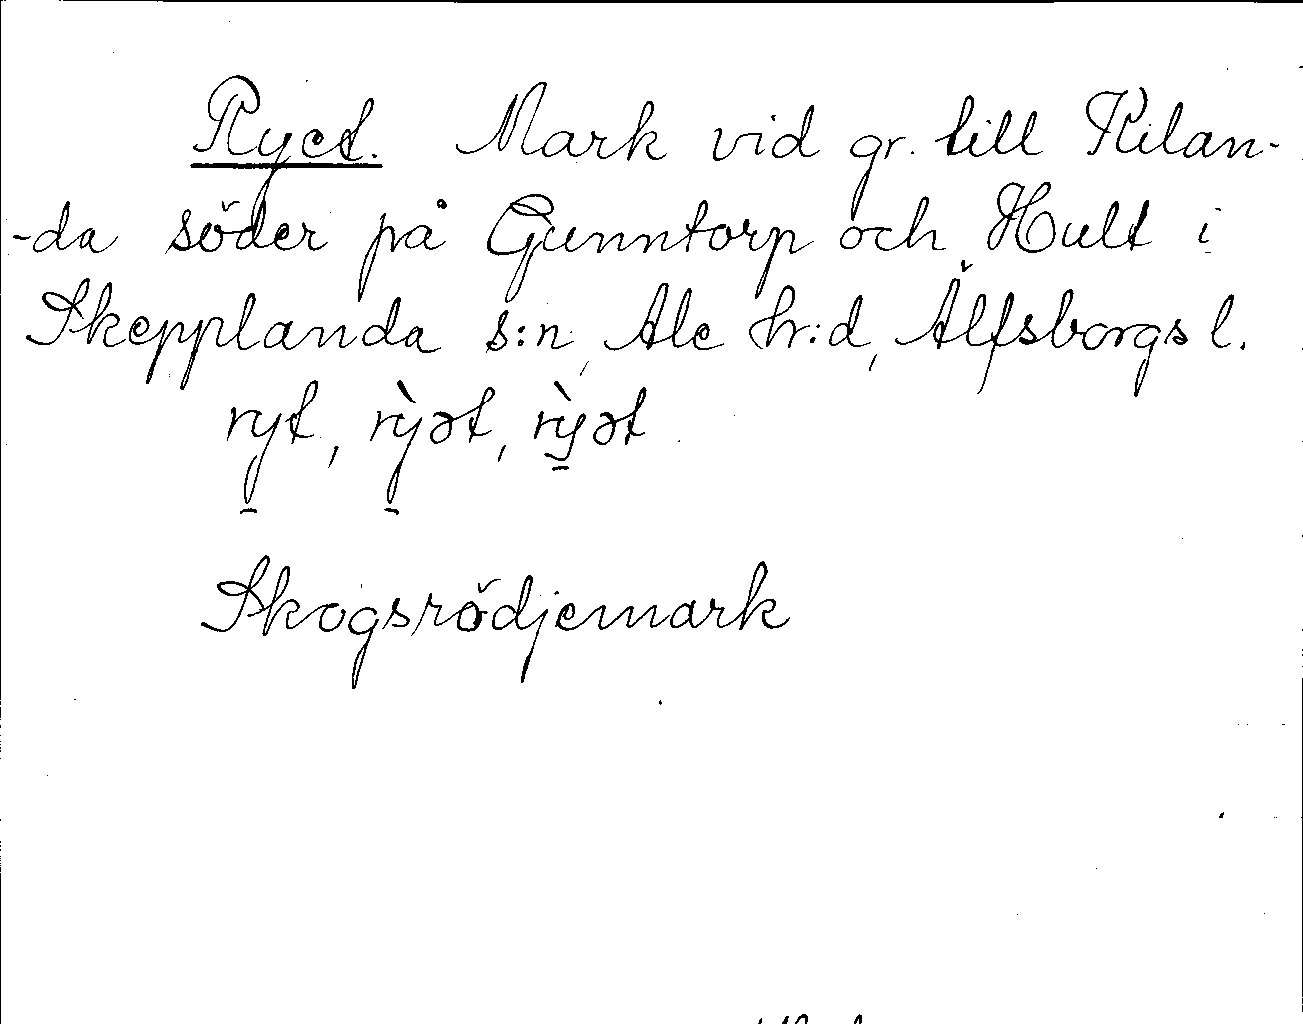 Ryet. Mark vid gr. till Kilan-
-da söder på Gunntorp och Hult i
Skepplanda s:n, Ale hr:d, Älfsborgs l.
ry̠t, rỳ̠ət, rỳ̠ət
Skogsrödjemark